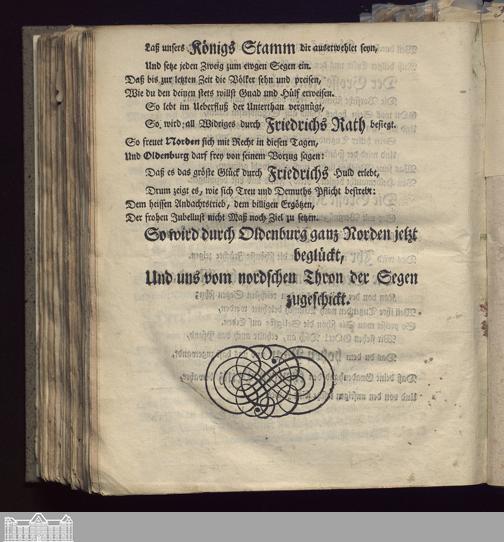 Laß unsers Königs Stamm dir auserwehlet seyn,
Und setze jeden Zweig zum ewgen Segen ein.
Daß bis zur letzten Zeit die Völker sehn und preisen,
Wie du den deinen stets willst Gnad und Hülf erweisen.
So lebt im Ueberfluß der Unterthan vergnügt,
So wird; all Widriges durch Friedrichs Rath besiegt.
So freuet Norden sich mit Recht in diesen Tagen,
Und Oldenburg darf frey von seinem Vorzug sagen:
Daß es das gröste Glück durch Friedrichs Huld erlebt,
Drum zeigt es, wie sich Treu und Demuths Pflicht bestrebt:
Dem heissen Andachtstrieb, dem billigen Ergötzen,
Der frohen Jubellust nicht Maß noch Ziel zu setzen.
So wird durch Oldenburg ganz Norden jetzt
beglückt,
Und uns vom nordschen Thron der Segen
zugeschickt.